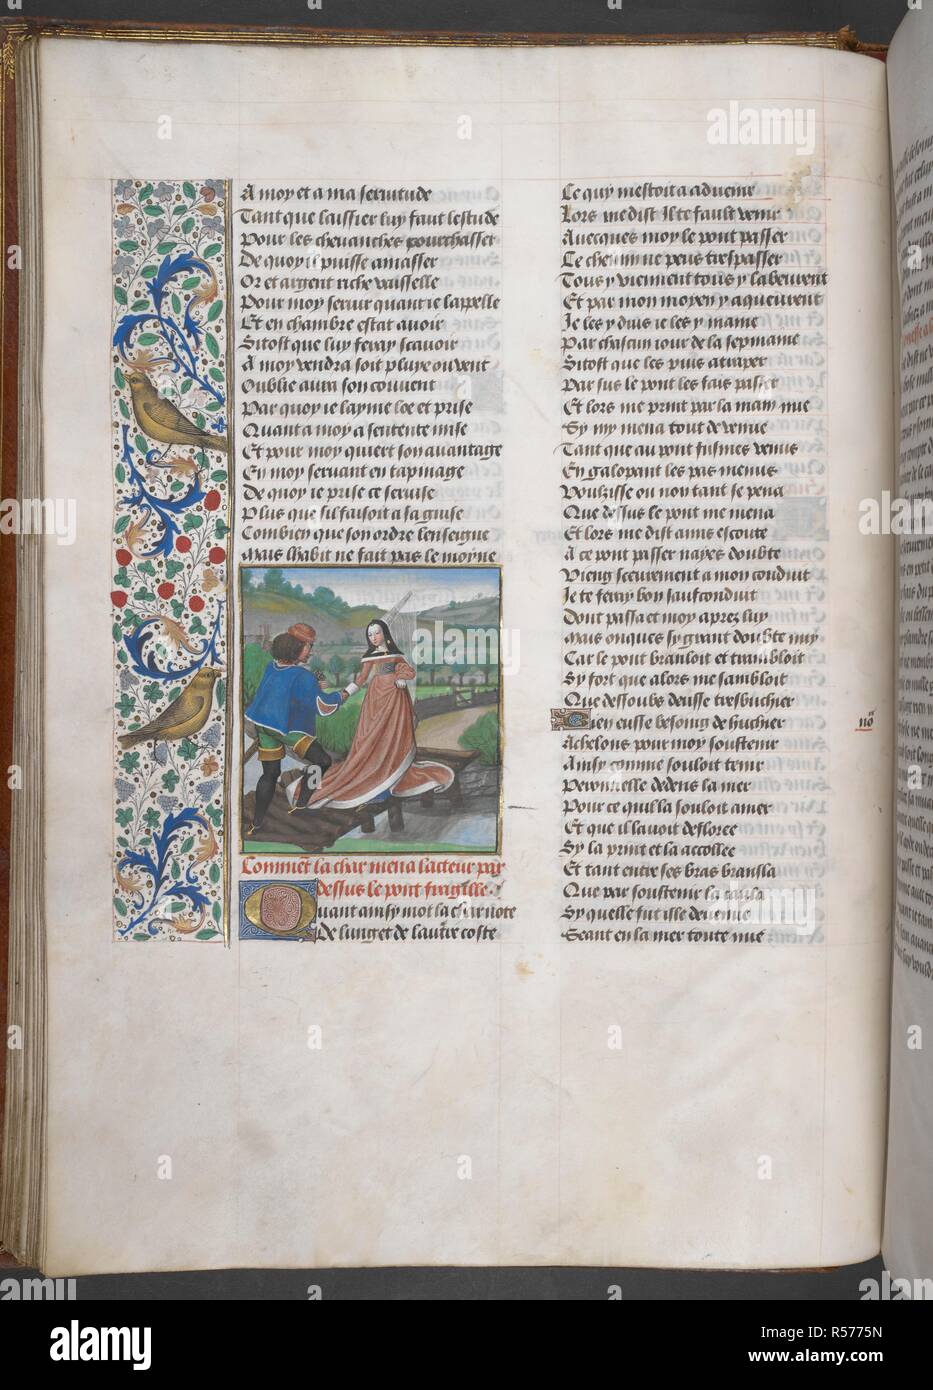 A moy et a ma servitude
Tant que laissier luy faut lestude
Pour les chevanches pourchasser
De quoy il puisse amasser
Or et argent riche vaisselle
Pour moy servir quant ie lappelle
Et en chambre estat avoir
Si tost que luy feray scavoir
A moy vendra soit pluye ou vent
Oublie aura son couvent
Par quoy ie layme loe et prise
Quant a moy a sentente mise
Et pour moy quiert son avantage
En moy servant en tapinage
De quoy ie prise ce servise
Plus que sil faisoit a sa guise
Combien que son ordre lenseigne
Mais lhabit ne fait pas le moyne
Comment la char mena lacteur par
dessus le pont fragille
Quant ainsy mot la char note
De lung et de lautre coste
Ce quy mestoit a advenir
Lors me dist Il te fault venir
Avecques moy le pont passer
Ce chemin ne peus trespasser
Tous y viennent tous y labeurent
Et par mon moyen y aqueurent
Ie les y duis ie les y maine
Par chascun iour de la sepmaine
Si tost que les puis atraper
Par sus le pont les fais passer
Et lors me print par la main nue
Sy my mena tout de venue
Tant que au pont fusmes venus
En galopant les pas menus
Voulsisse ou non tant se pena
Que dessus le pont me mena
Et lors me dist amis escoute
A ce pont passer nayes doubte
Vieng seurement a mon conduit
Je te feray bon saufconduit
Dont passa et moy aprez luy
Mais onques sy grant doubte nuy
Car le pont branloit et trambloit
Sy fort que alors me sambloit
Que dessoubz deusse tresbuchier
Bien eusse besoing de huchier
Achelous pour moy soustenir
Ainsy comme souloit tenir
Pernnelle dedens la mer
Pour ce quil la souloit amer
Et que il lavoit defloree
Sy la print et la accollee
Et tant entre ses bras bransla
Que par soustenir la
Sy quelle fut ille devenue
Seant en la mer toute nue
no
alamy
alamy stock photo
R5775N
www.alamy.com